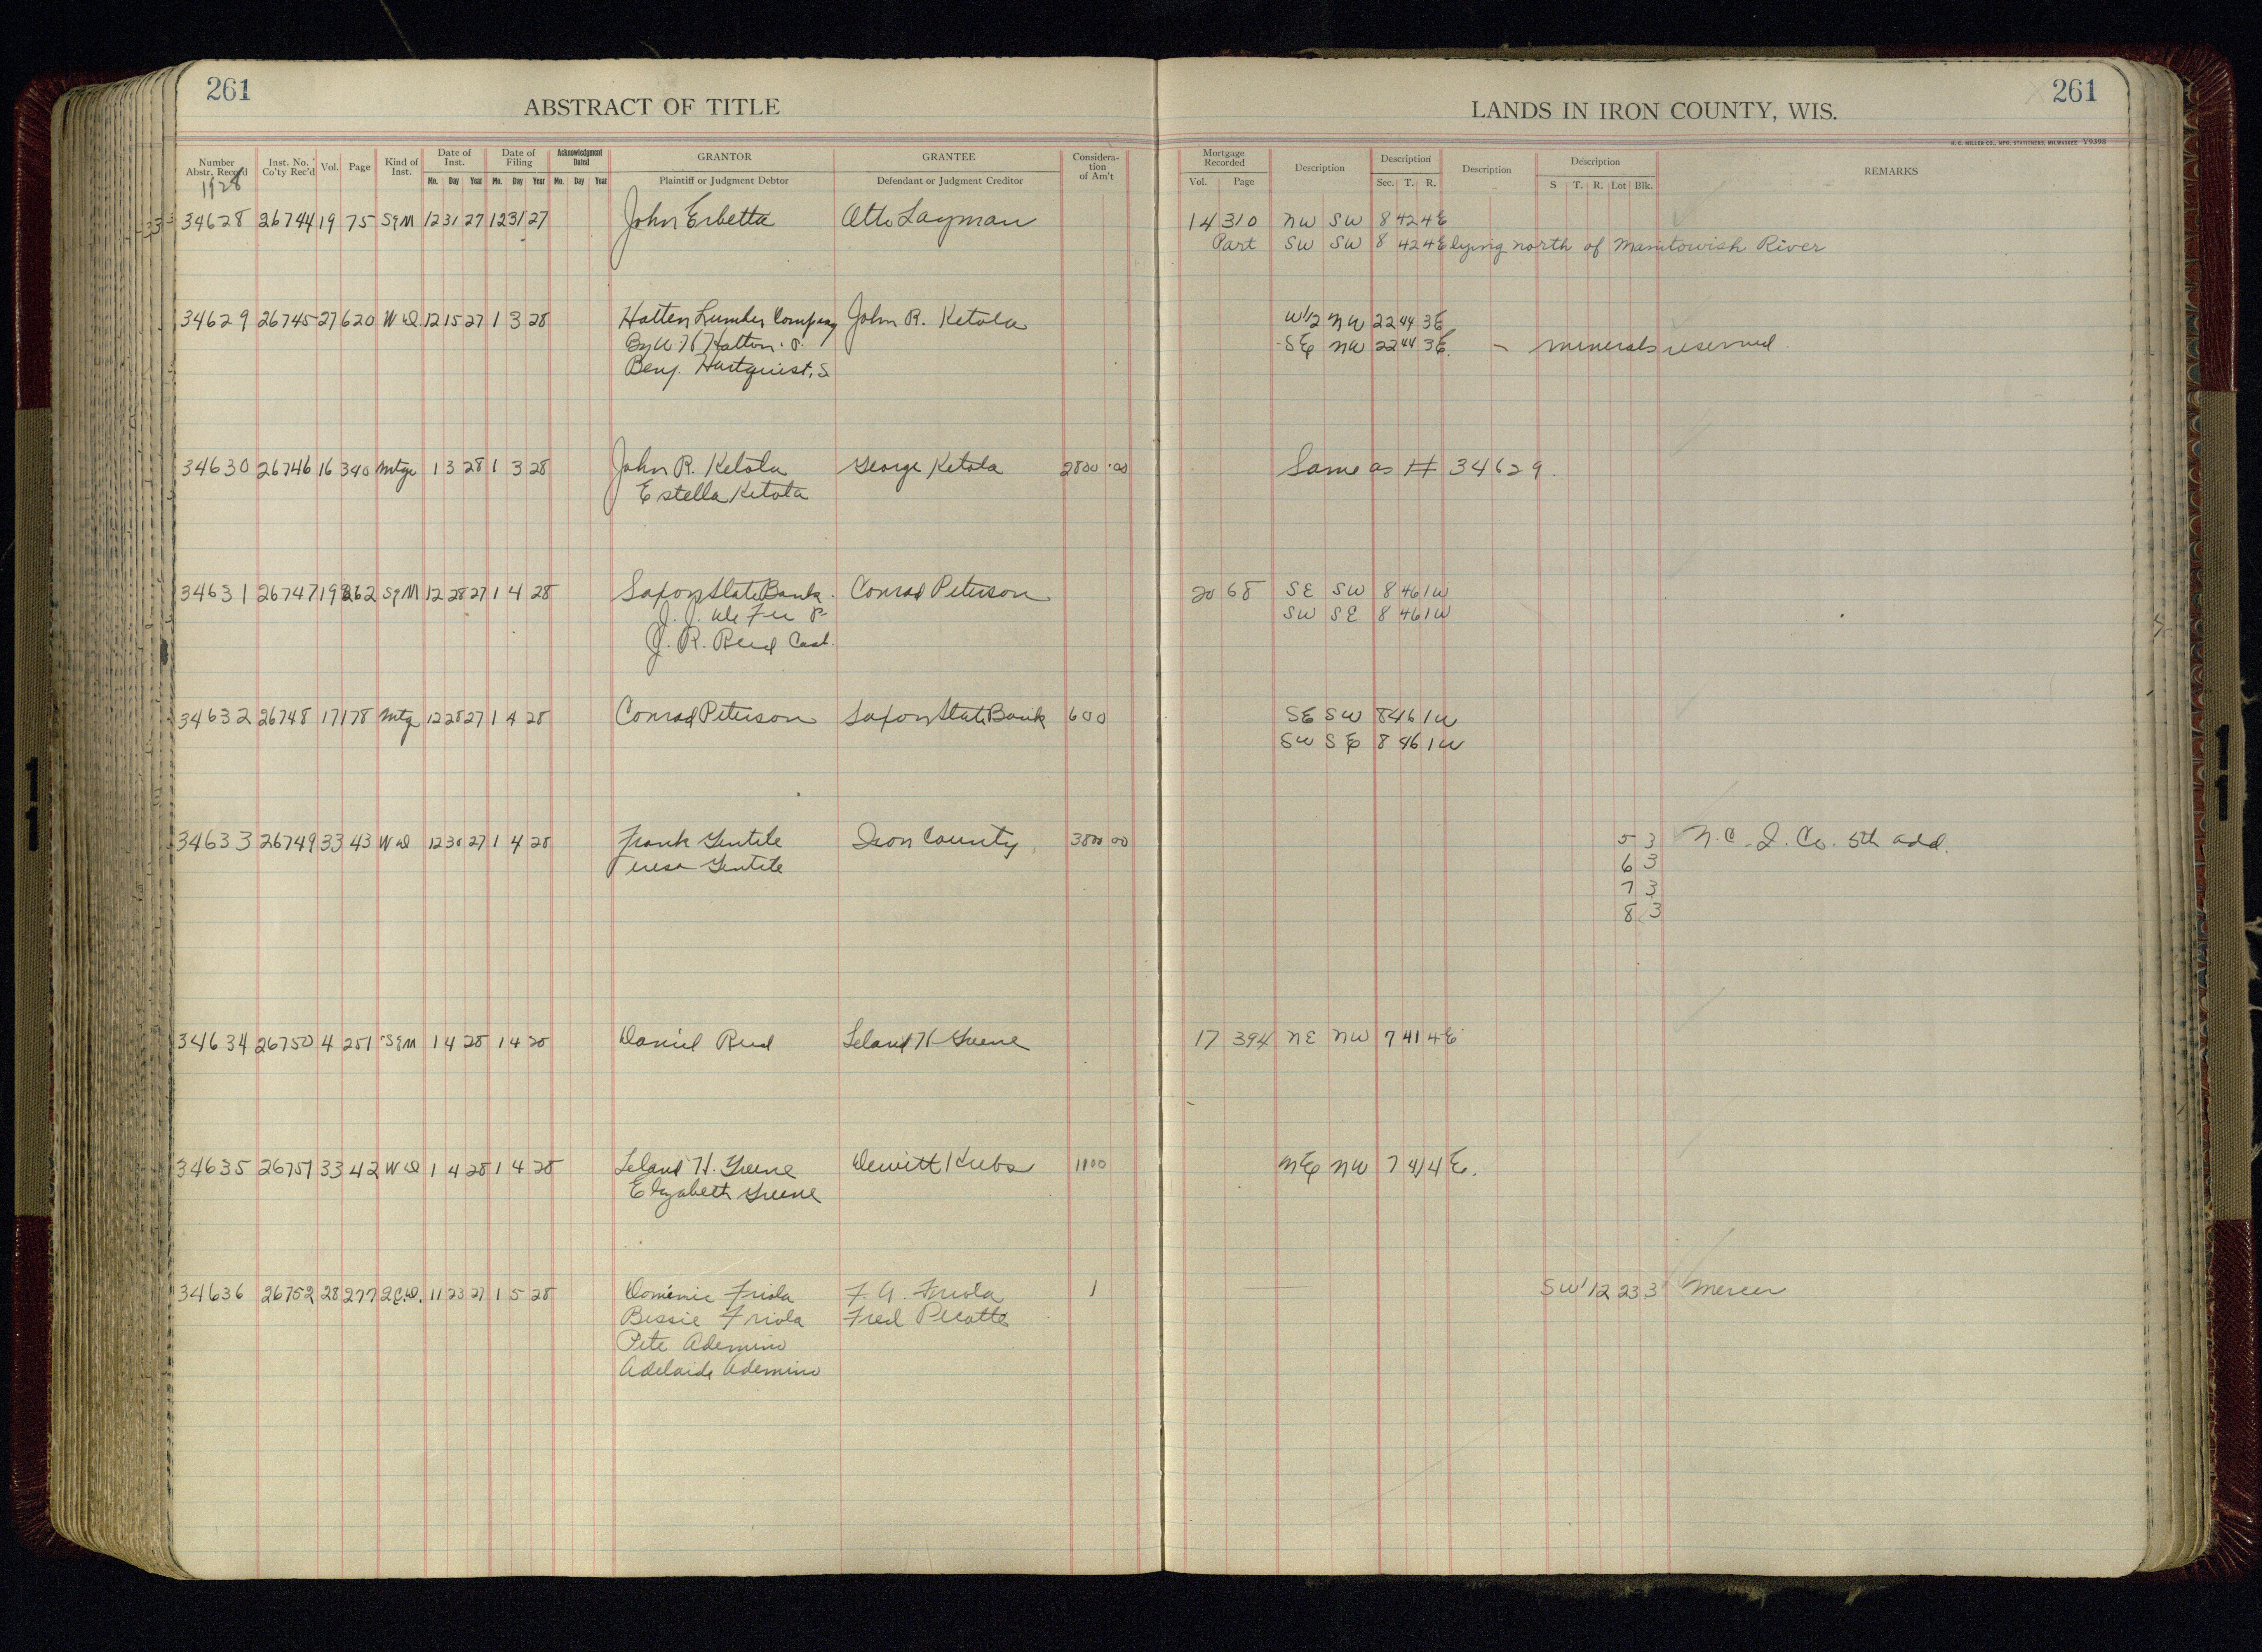 261
ABSTRACT OF TITLE
LANDS IN IRON COUNTY, WIS.
261
H. C. MILLER CO., MFG. STATIONERS, MILWAUKEE V9398
Number Abstr. Record
Inst. No. Co'ty Rec'd
Vol.
Page
Kind of Inst.
Date of Inst.
Mo. Day Year
Date of Filing
Mo. Day Year
Acknowledgment Dated
Mo. Day Year
GRANTOR
Plaintiff or Judgment Debtor
GRANTEE
Defendant or Judgment Creditor
Consideration of Am't
Mortgage Recorded
Vol. Page
Description
Description
Sec. T. R.
Description
Description
S T. R. Lot Blk.
REMARKS
1928
34628 26744 19 75 S&M 12 31 27 12 31 27 John Erbetta Otto Layman 14 310 NW SW 8 42 4E
Part SW SW 8 42 4E lying north of Manitowish River
34629 26745 27 620 WD 12 15 27 1 3 28 Hatten Lumber Company John R. Ketola W1/2 NW 22 44 3E
By W H Hatton. P. SE NW 22 44 3E - minerals reserved
Benj. Hartquist, S
34630 26746 16 340 Mtge 1 3 28 1 3 28 John R. Ketola George Ketola 2800.00 Same as # 34629.
Estella Ketola
34631 26747 19 262 S&M 12 28 27 1 4 28 Saxon State Bank Conrad Peterson 20 68 SE SW 8 46 1W
J. J. De Fer P SW SE 8 46 1W
J. R. Reid Cash.
34632 26748 17 178 Mtg 12 28 27 1 4 28 Conrad Peterson Saxon State Bank 600 SE SW 8 46 1W
SW SE 8 46 1W
34633 26749 33 43 WD 12 30 27 1 4 28 Frank Gentile Iron County 3800 00 5 3 N. C. I. Co. 5th add.
Teresa Gentile 6 3
7 3
8 3
34634 26750 4 251 S&M 1 4 28 1 4 28 Daniel Reid Leland H Greene 17 394 NE NW 7 41 4E
34635 26751 33 42 WD 1 4 28 1 4 28 Leland H. Greene Dewitt Kubs 1100 NE NW 7 41 4E.
Elizabeth Greene
34636 26752 28 277 Q.C.D. 11 23 27 1 5 28 Domenic Friola F. A. Friola 1 SW 1/2 23 3 Mercer
Bessie Friola Fred Picotte
Pete Ademino
Adelaide Ademino